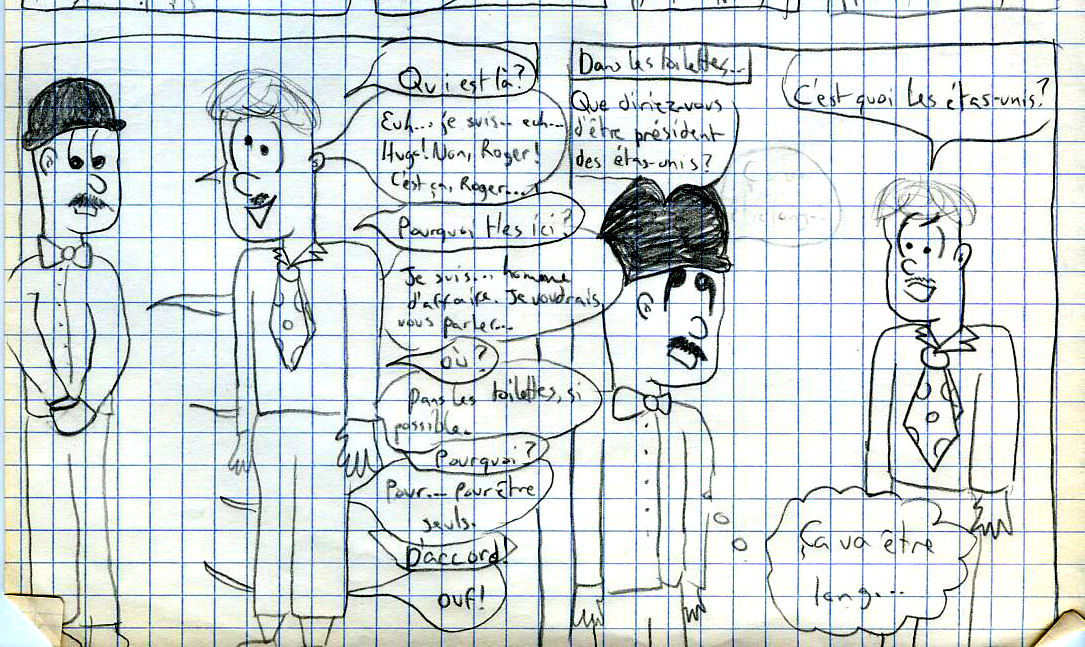 Qui est là?
Euh... je suis... euh...
Hugo! Non, Roger!
C'est ça, Roger...
Pourquoi êtes ici?
Je suis... homme
d'affaire. Je voudrais,
vous parler...
où?
Dans les toilettes, si
possible.
Pourquoi?
Pour... pour être
seuls.
D'accord!
OUF!
Dans les toilettes...
Que diriez-vous
d'être président
des étas-unis?
C'est quoi Les étas-unis?
Ça va être
long...